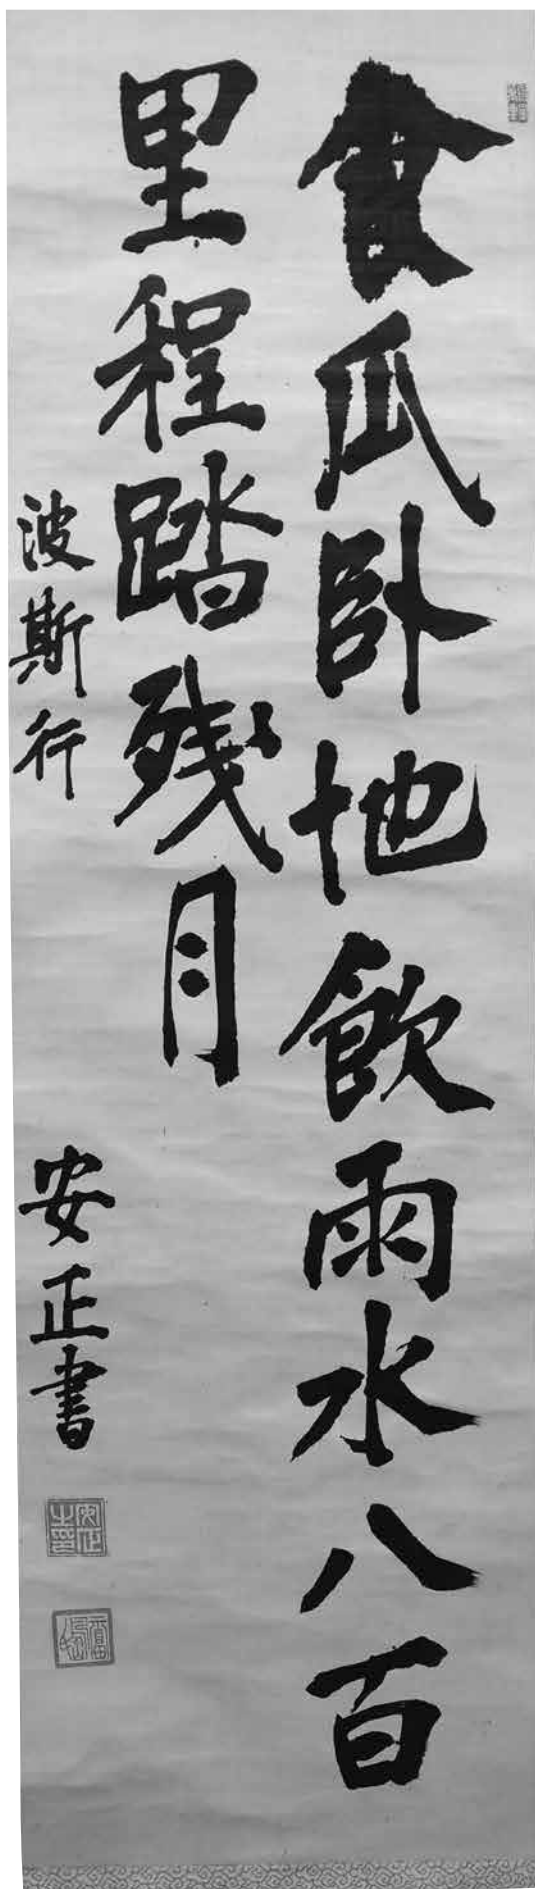 食瓜臥地飲雨水八百
里程踏残月
波斯行
安正書
安正之印